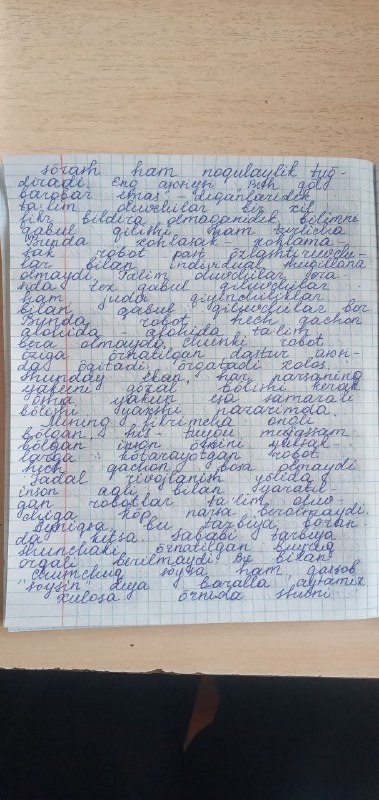 sōrash ham noqulaylik tuğ-
diradi. Eng asosiysi "Besh qōl
barobar emas" - deganlaridek
ta'lim oluvchilar bir xil
fikr bildira olmaganidek, bilimni
qabul qilishi ham turlicha
Bunda xohlasak - xohlama
sak robot past ōzlashtiruvchi-
lar bilan individual shuğullana
olmaydi. Ta'lim oluvchilar ora-
sida tez qabul qiluvchilar
ham juda qiyinchiliklar
bilan qabul qiluvchilar bor
Bunda robot hech qachon
alohida - alohida ta'lim
bera olmaydi, chunki robot
ōziga ōrnatilgan dastur asosi-
da ōqitadi, ōrgatadi xolos
shunday ekan, har narsaning
yakuni gōzal bōlishi kerak
ōsha yakun esa samarali
bōlishi yaxshi nazarimda.
Mening fikrimcha ongli
bōlgan, his tuyğu mujassam
bōlgan inson ōrnini yuksak-
larga kōtarayotgan robot
hech qachon bosa olmaydi
Jadal rivojlanish yōlida
inson aqli bilan yaratil
gan robotlar ta'lim oluv-
chiga kōp narsa berolmaydi.
Ayniqsa, bu tarbiya boran-
da ketsa. Sababi tarbiya
shunchaki ōrnatilgan buyruq
orqali berilmaydi. Biz bilan
"chumchuq sōysa ham, qassob
sōysin" deya baralla aytamiz
xulosa ōrnida shuni